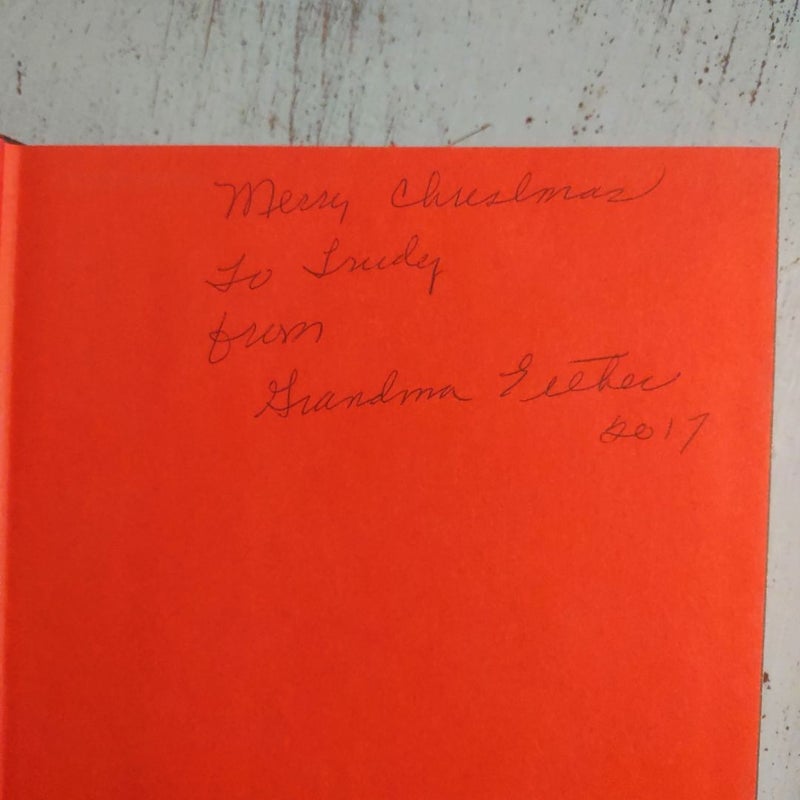 Merry Christmas
To Trudy
from
Grandma
2017